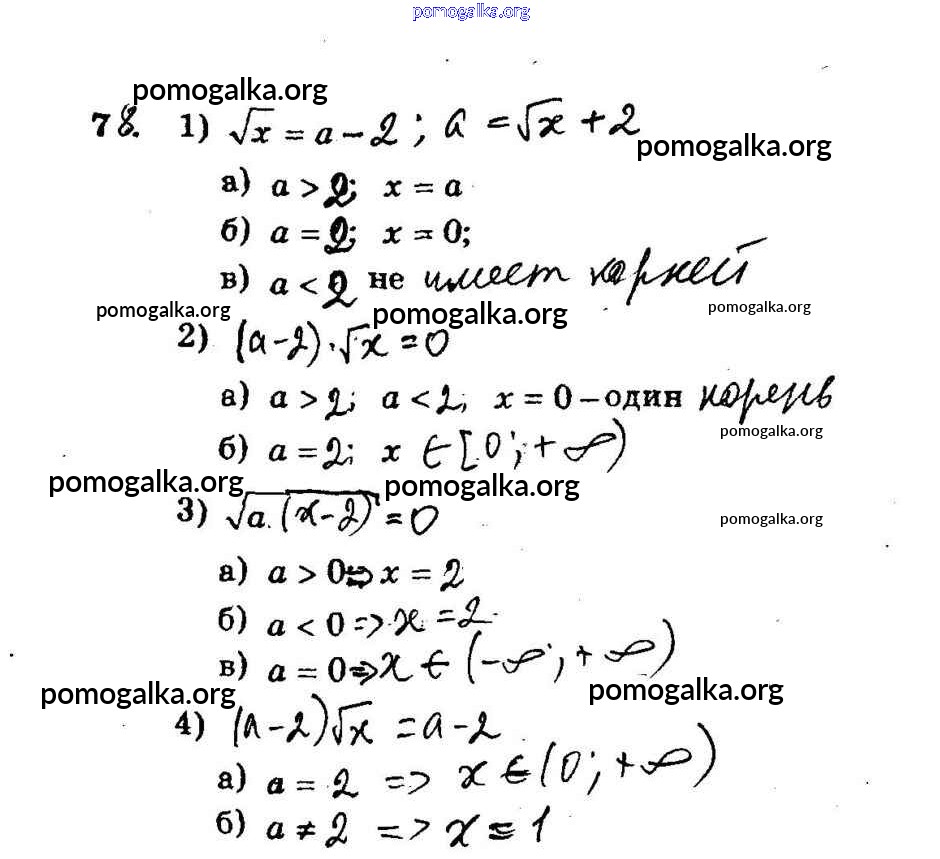 pomogalka.org
pomogalka.org
78. 1) √x = a − 2; a = √x + 2
pomogalka.org
а) a > 2; x = a
б) a = 2; x = 0;
в) a < 2 не имеет корней
pomogalka.org pomogalka.org pomogalka.org
2) (a−2)·√x = 0
а) a > 2; a < 2; x = 0 – один корень
pomogalka.org
б) a = 2; x ∈ [0; +∞)
pomogalka.org pomogalka.org
3) √a·(x−2) = 0
pomogalka.org
а) a > 0 => x = 2
б) a < 0 => x = 2
в) a = 0 => x ∈ (−∞; +∞)
pomogalka.org pomogalka.org
4) (a−2)√x = a−2
а) a = 2 => x ∈ (0; +∞)
б) a ≠ 2 => x = 1